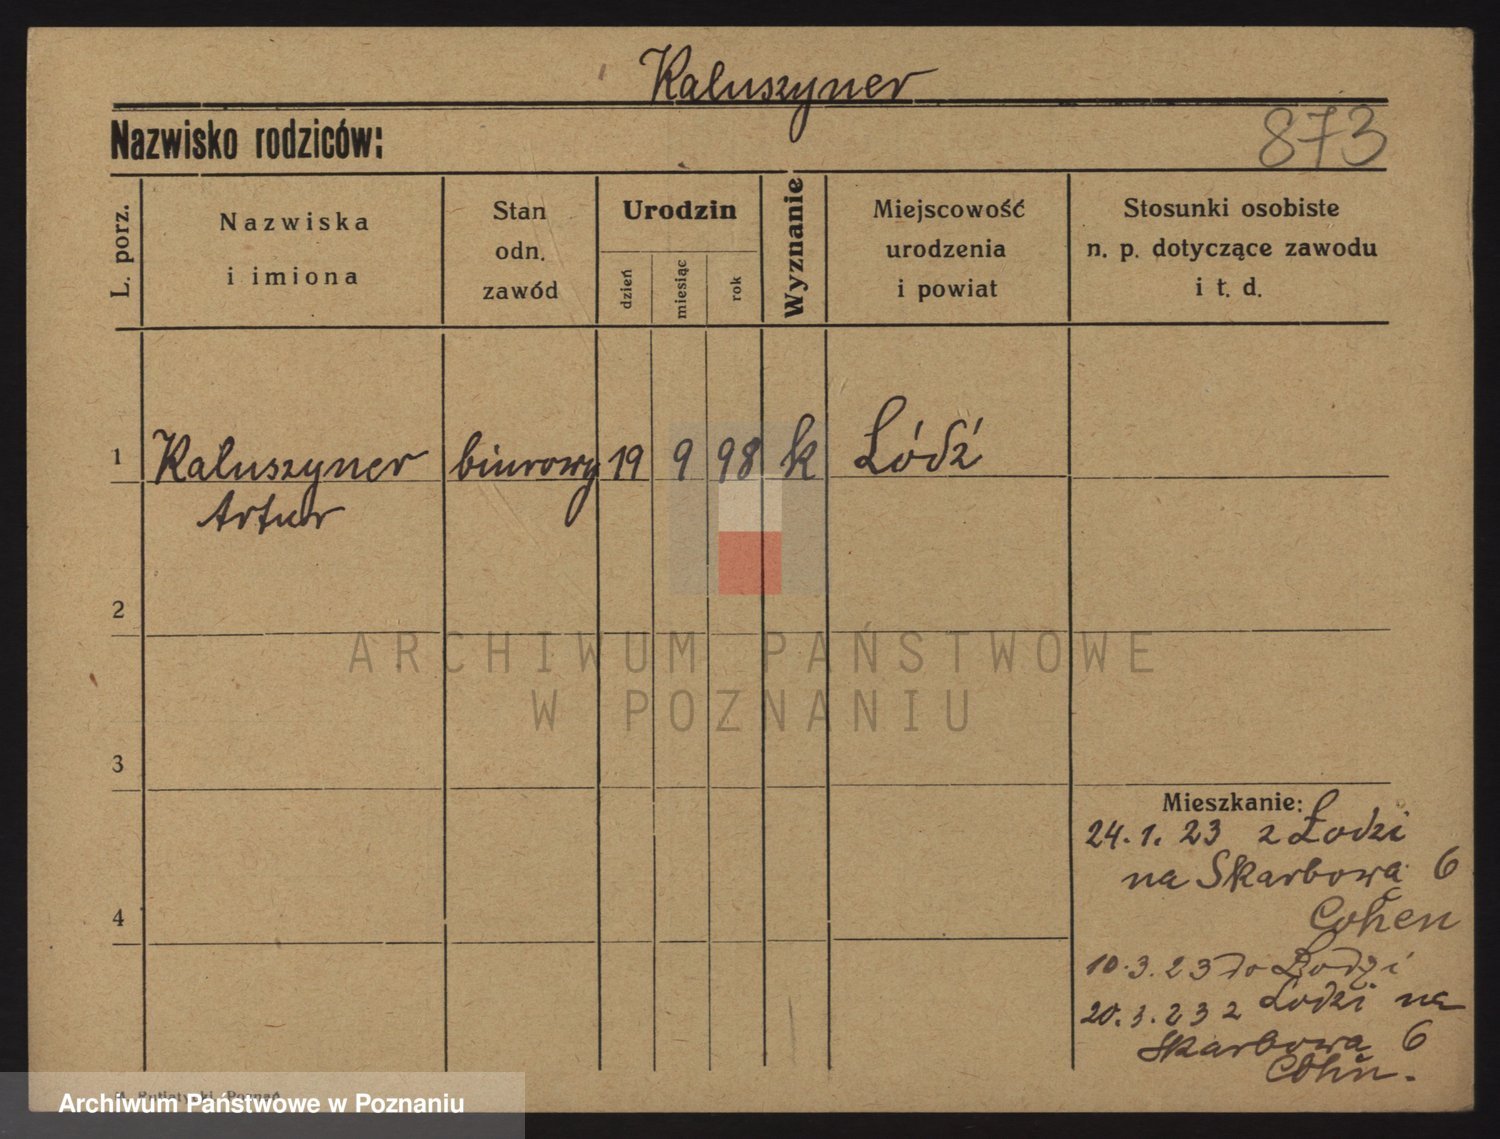 Kaluszyner
Nazwisko rodziców:
873
L. porz.
Nazwiska
i imiona
Stan
odn.
zawód
Urodzin
dzień
miesiąc
rok
Wyznanie
Miejscowość
urodzenia
i powiat
Stosunki osobiste
n. p. dotyczące zawodu
i t. d.
1 Kaluszyner biurowy 19 9 98 k Łódź
Artur
2
3
4
Mieszkanie:
24.1.23 z Łodzi
na Skarbowa 6
Cohen
10.3.23 do Łodzi
20.3.23 z Łodzi na
Skarbowa 6
Cohn.
ARCHIWUM PAŃSTWOWE
W POZNANIU
Archiwum Państwowe w Poznaniu